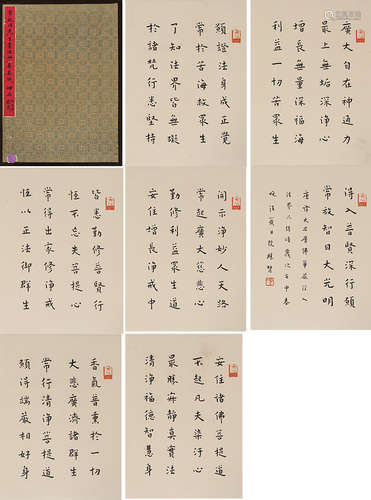 廣大自在神通力
最上無垢深淨心
增長無量深福海
利益一切苦眾生
願證法身成正覺
常於苦海救眾生
了知法界皆無礙
於諸梵行悉堅持
得入普賢深行願
常放智日大光明
開示淨妙人天路
常起廣大慈悲心
勤修利益眾生道
安住增長淨戒中
皆悉勤修普賢行
恒不忘失菩提心
恒得出家修淨戒
恒以正法御群生
安住諸佛菩提道
不起凡夫染汙心
最勝寂靜真實法
清淨福德智慧身
香氣普熏於一切
大悲廣濟諸群生
常行清淨菩提道
願得端嚴相好身